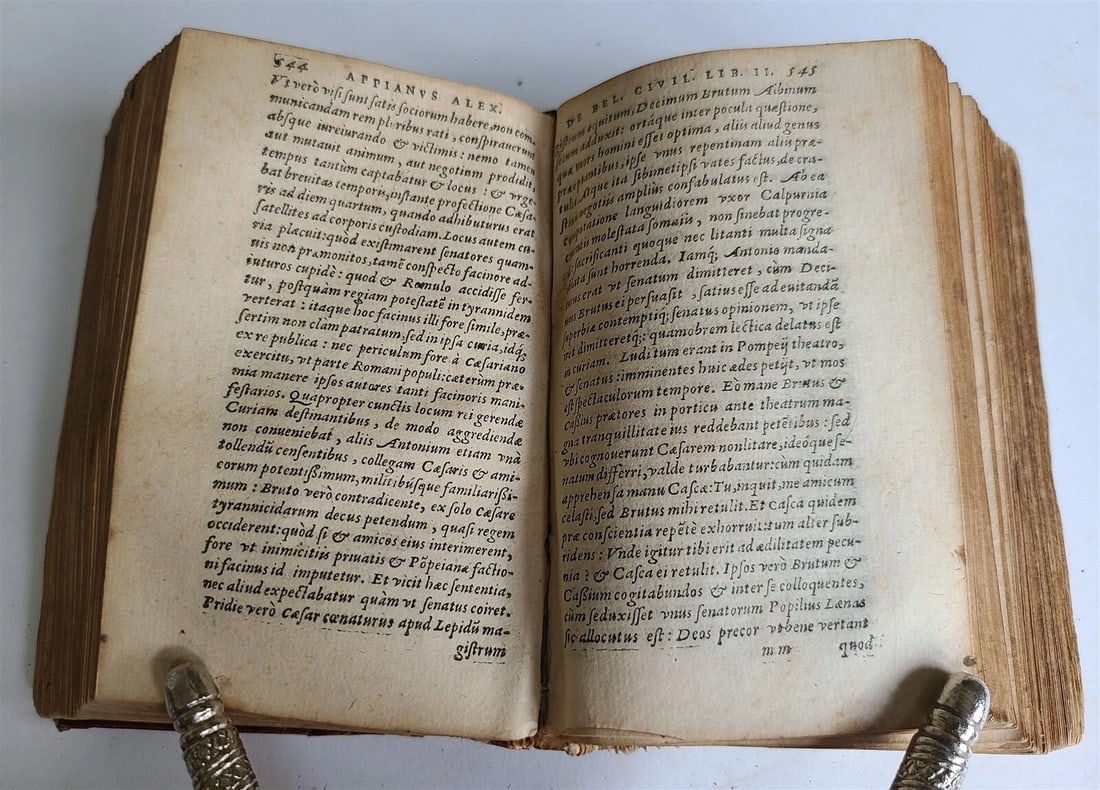 544 APPIANVS ALEX.
Vt verò visi sunt satis sociorum habere, non com
municandam rem pluribus rati, conspirauerunt
absque iureiurando & victimis: nemo tamen
aut mutauit animum, aut negotium prodidit,
tempus tantùm captabatur & locus: & vrge-
bat breuitas temporis, instante profectione Cæsa-
ris ad diem quartum, quando adhibuturus erat
satellites ad corporis custodiam. Locus autem cu-
ria placuit: quòd existimarent senatores quam-
uis non præmonitos, tamẽ conspecto facinore ad-
futuros cupidè: quod & Romulo accidisse fer-
tur, postquàm regiam potestatẽ in tyrannidem
verterat: itaque hoc facinus illi fore simile, præ-
sertim non clam patratum, sed in ipsa curia, idq;
ex re publica: nec periculum fore à Cæsariano
exercitu, vt parte Romani populi: cæterùm præ-
mia manere ipsos autores tanti facinoris mani-
festarios. Quapropter cunctis locum rei gerendæ
Curiam destinantibus, de modo aggrediendæ
non conueniebat, aliis Antonium etiam vnà
tollendũ censentibus, collegam Cæsaris & ami-
corum potentissimum, militibúsque familiarissi-
mum: Bruto verò contradicente, ex solo Cæsare
tyrannicidarum decus petendum, quasi regem
occiderent: quòd si & amicos eius interimerent,
fore vt inimicitiis priuatis & Põpeianæ factio-
ni facinus id imputetur. Et vicit hæc sententia,
nec aliud expectabatur quàm vt senatus coiret.
Pridie verò Cæsar cœnaturus apud Lepidũ ma-
gistrum
DE BEL. CIVIL. LIB. II. 545
gistrum equitum, Decimum Brutum Albinum
secum adduxit: ortáque inter pocula quæstione,
quæ mors homini esset optima, aliis aliud genus
præoptantibus, ipse vnus repentinam aliis præ-
tulit. Atque ita sibimetipsi vates factus, de cra-
stinis negotiis ampliùs confabulatus est. Ab ea
compotatione languidiorem vxor Calpurnia
cruentis molestata somniis, non sinebat progre-
di: sacrificanti quoque nec litanti multa signa
oblata sunt horrenda. Iamq; Antonio manda-
turus erat vt senatum dimitteret, cùm Deci-
mus Brutus ei persuasit, satius esse ad euitandã
superbiæ contemptiq; senatus opinionem, vt ipse
veniret dimitteretq;: quamobrem lectica delatus est
in curiam. Ludi tum erant in Pompeij theatro,
& senatus: imminentes huic ædes petijt, vt mos
est spectaculorum tempore. Eò mane Brutus &
Cassius prætores in porticu ante theatrum ma-
gna tranquillitate ius reddebant petẽtibus: sed
vbi cognouerunt Cæsarem non litare, ideóque se-
natum differri, valde turbabantur: cùm quidam
apprehensa manu Cascæ: Tu, inquit, me amicum
celasti, sed Brutus mihi retulit. Et Casca quidem
præ conscientia repẽtè exhorruit: tum alter sub-
ridens: Vnde igitur tibi erit ad ædilitatem pecu-
nia? & Casca ei retulit. Ipsos verò Brutum &
Cassium cogitabundos & inter se colloquentes,
cùm seduxisset vnus senatorum Popilius Lænas
sic allocutus est: Deos precor vt bene vertant
mm quod